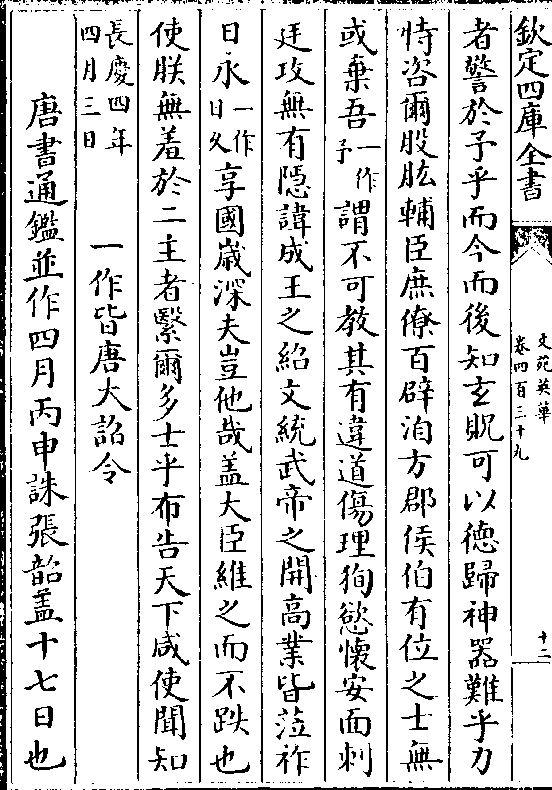 欽定四庫全書
文苑英華
卷四百三十九
十二
者警於予乎而今而後知玄貺可以德歸神器難乎力
恃咨爾股肱輔臣庶僚百辟洎方郡侯伯有位之士無
或棄吾一作予謂不可教其有違道傷理狥慾懷安面刺
廷攻無有隠諱成王之紹文統武帝之開高業皆蒞祚
日永一作日久享國嵗深夫豈他哉盖大臣維之而不跌也
使朕無羞於二主者繄爾多士乎布告天下咸使聞知
長慶四年四月三日 一作皆唐大詔令
唐書通鑑並作四月丙申誅張韶盖十七日也